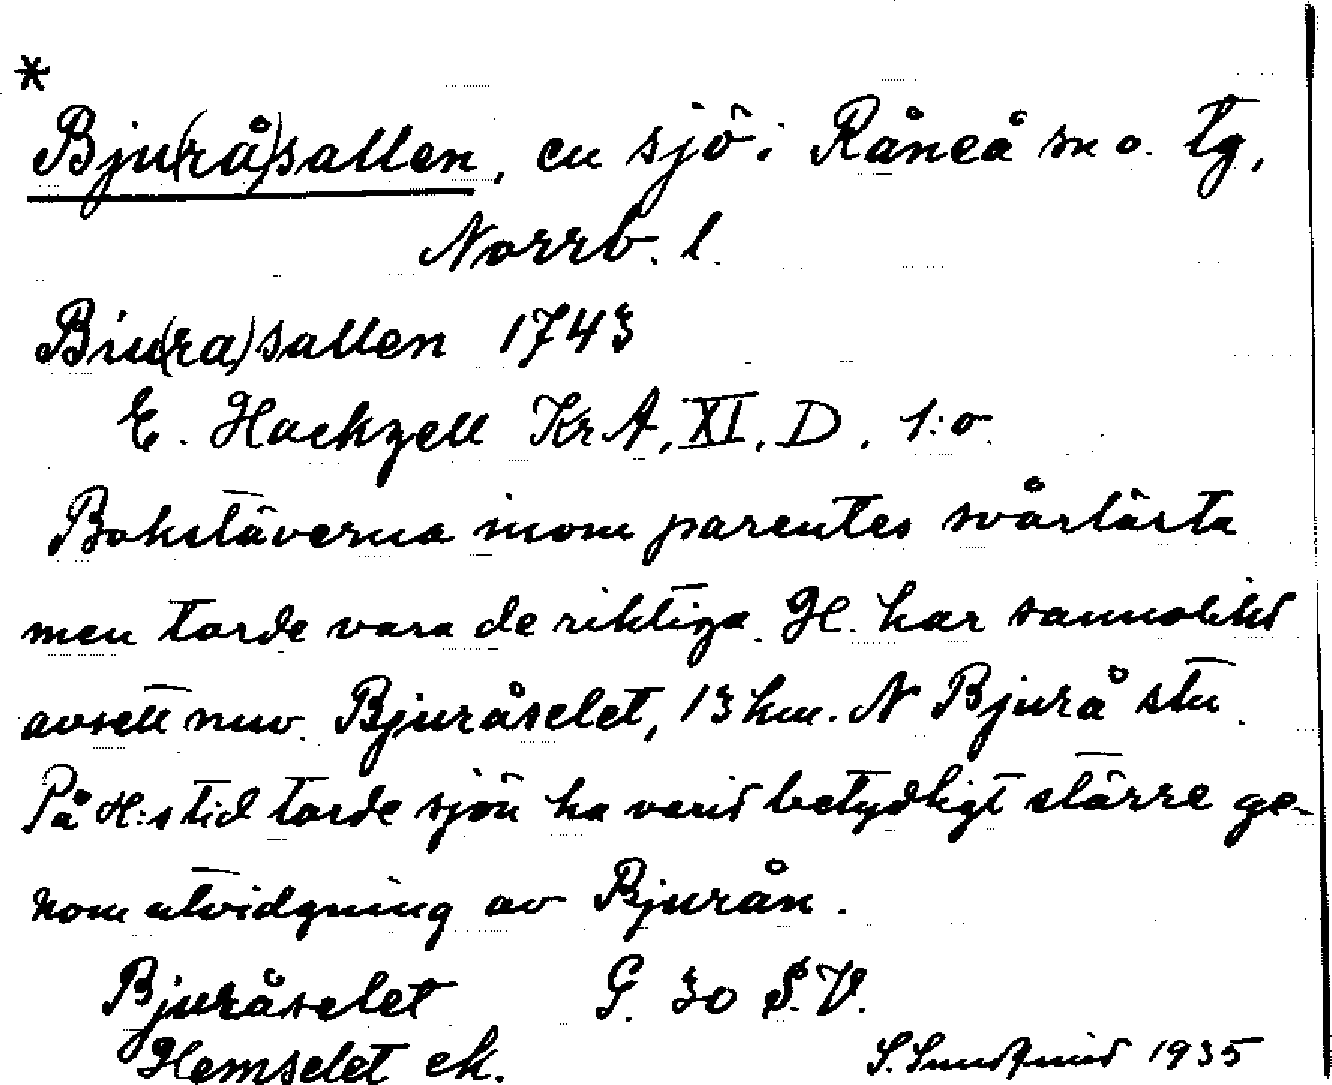 *
Bju(rå)sallen, en sjö i Råneå sn o. tg,
Norrb. l.
Biu(ra)sallen 1743
E. Hackzell KrA, XI, D. 1:o
Bokstäverna inom parentes svårlästa
men torde vara de riktiga. H. har sannolikt
avsett nuv. Bjuråselet, 13 km. N Bjurå stn.
På H:s tid torde sjön ha varit betydligt större ge-
nom utvidgning av Bjurån.
Bjuråselet G. 30 S.V.
Hemselet ek. S. 1935